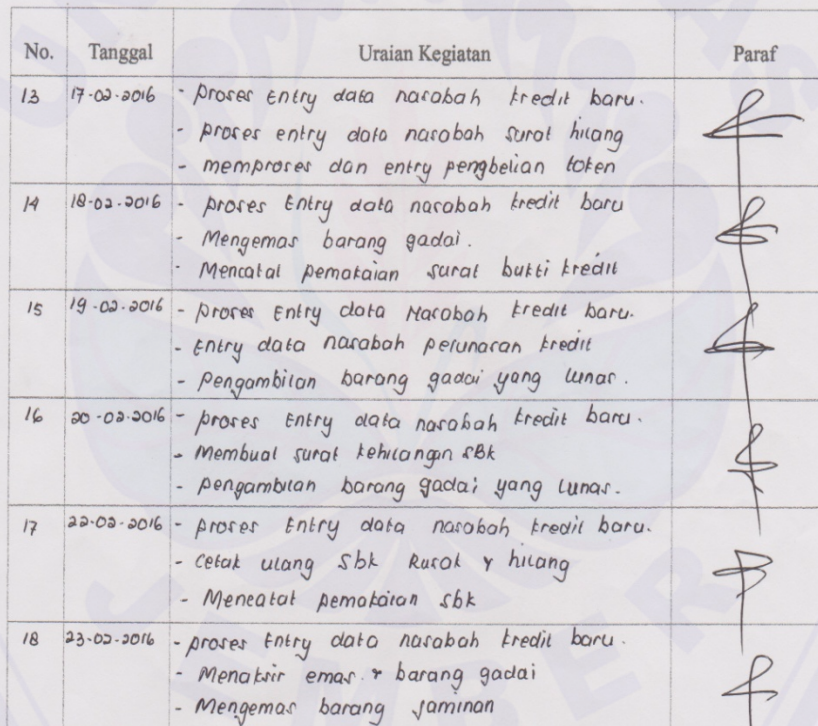 No. Tanggal Uraian Kegiatan Paraf
13 17-02-2016 - Proses Entry data nasabah kredit baru.
- proses entry data nasabah surat hilang
- memproses dan entry pengbelian token
14 18-02-2016 - proses Entry data nasabah kredit baru
- Mengemas barang gadai.
- Mencatat pemakaian surat bukti kredit
15 19-02-2016 - proses Entry data Nasabah kredit baru.
- Entry data nasabah pelunasan kredit
- Pengambilan barang gadai yang lunas.
16 20-02-2016 - proses Entry data nasabah kredit baru.
- Membuat surat kehilangn SBk
- pengambilan barang gadai yang lunas.
17 22-02-2016 - proses Entry data nasabah kredit baru.
- Cetak ulang Sbk Rusak & hilang
- Mencatat pemakaian sbk
18 23-02-2016 - proses Entry data nasabah kredit baru.
- Menaksir emas & barang gadai
- Mengemas barang jaminan
JEMBER